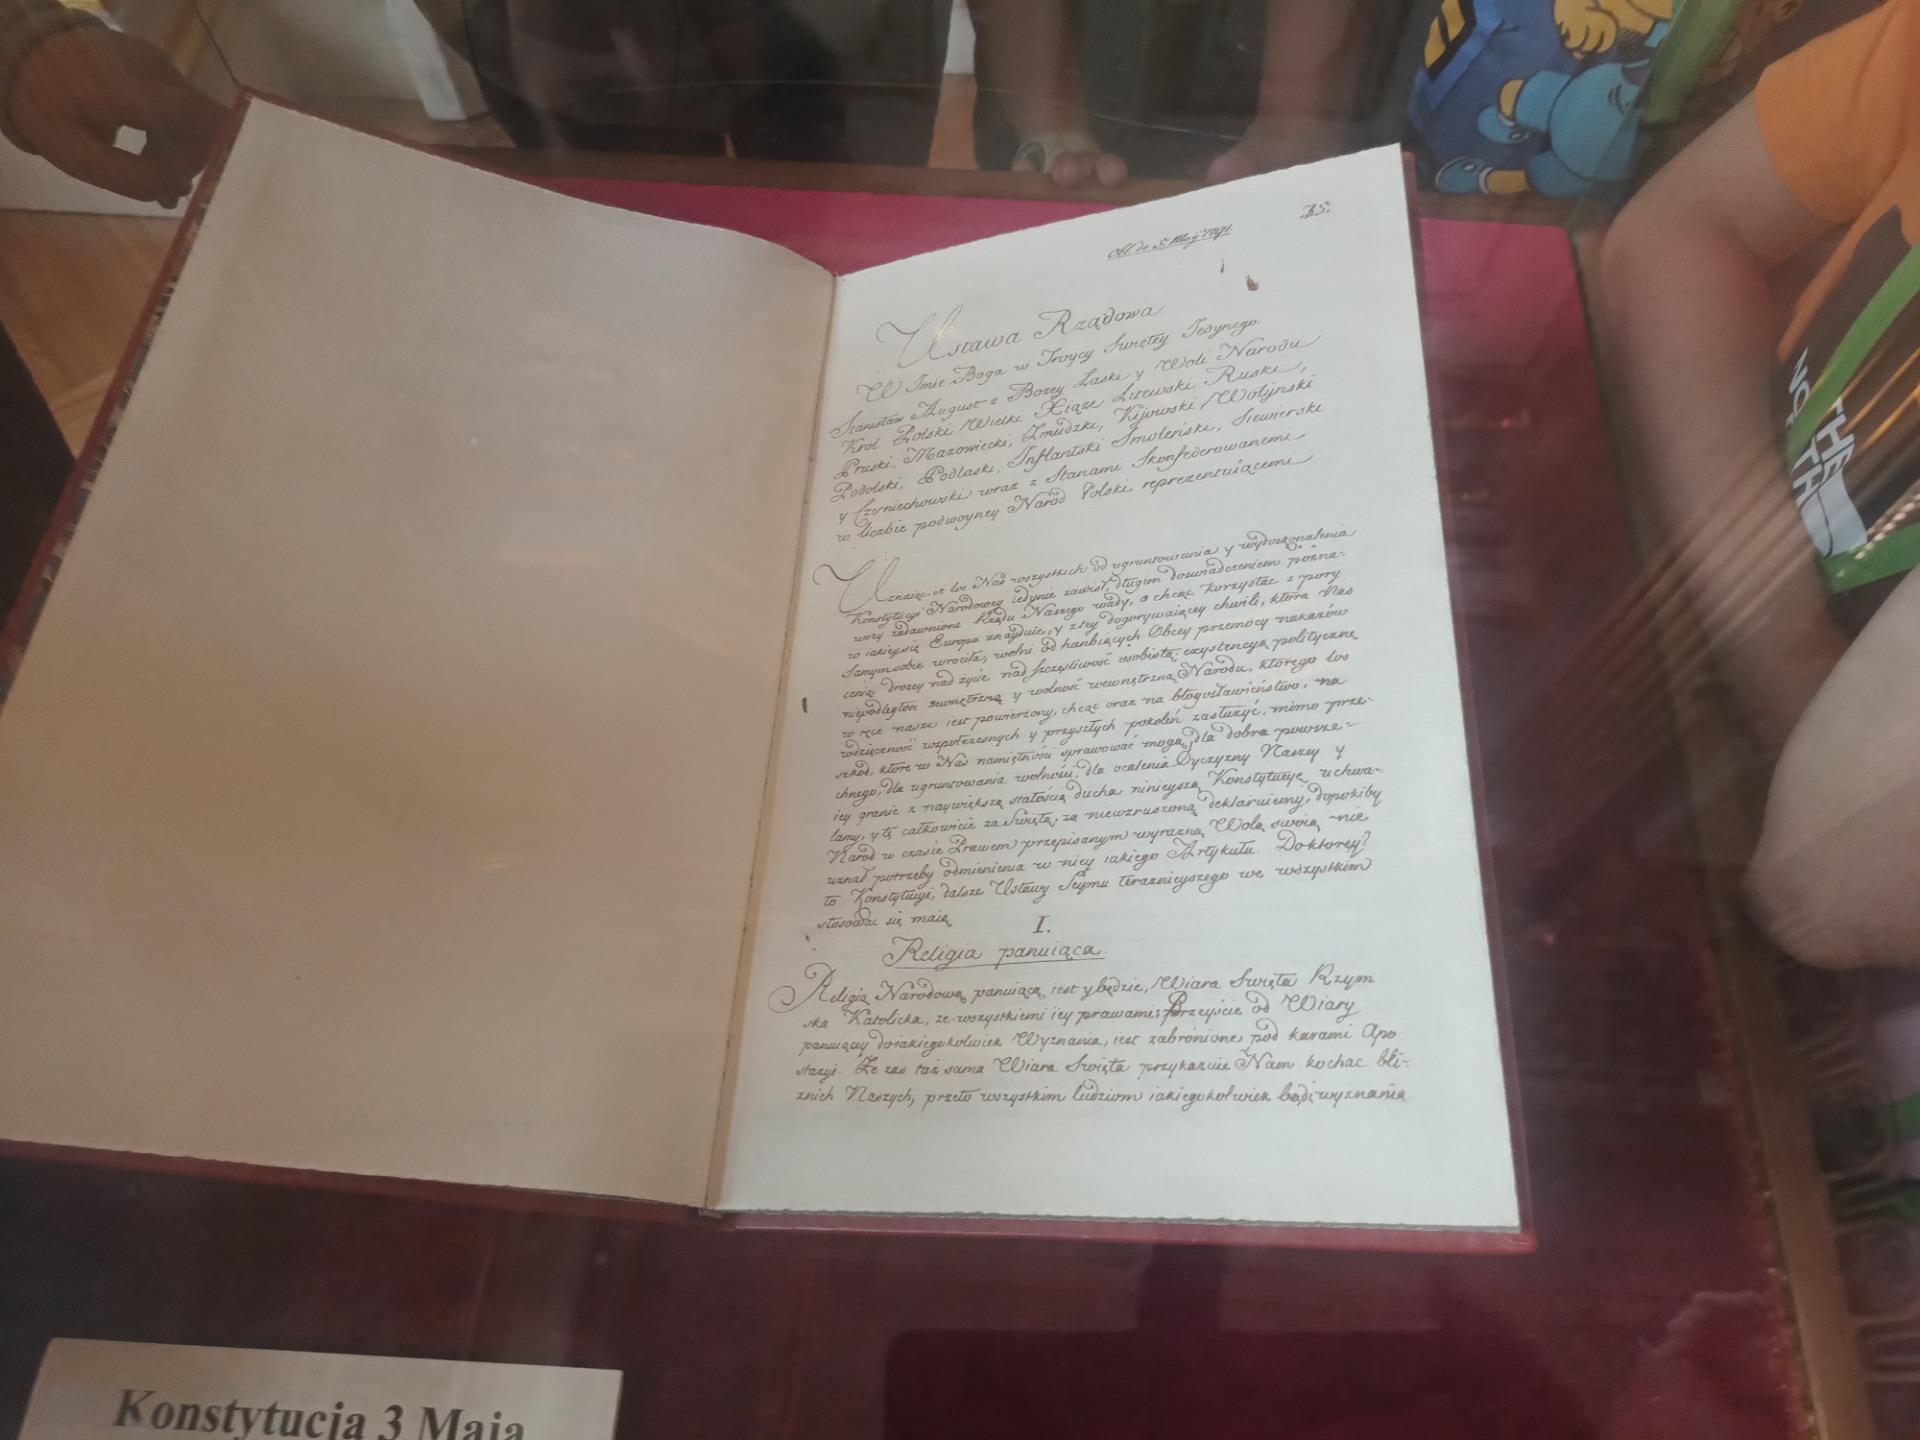 35.
Obl. de 5. Maij 1791.
Ustawa Rządowa.
W Imie Boga w Troycy Swiętey Jedynego.
Stanisław August z Bozey Łaski y Woli Narodu
Krol Polski Wielki Xiąze Litewski Ruski,
Pruski, Mazowiecki, Zmudzki, Kijowski, Wołyński
Podolski, Podlaski, Inflantski Smoleński, Siewierski
y Czerniechowski wraz z Stanami Skonfederowanemi
w liczbie podwoyney Naród Polski reprezentuiącemi
Uznaiąc, iż los Nas wszystkich od ugruntowania y wydoskonalenia
Konstytucyi Narodowey iedynie zawisł, długim doswiadczeniem pozna-
wszy zadawnione Rządu Naszego wady, a chcąc korzystać z pory
w iakiey się Europa znayduie, y z tey dogorywaiącey chwili, która Nas
samym sobie wrociła, wolni od hanbiących Obcey przemocy nakazów
ceniąc drozey nad życie nad szczęśliwość osobistą, exystencyą polityczną
niepodległość zewnętrzną y wolność wewnętrzną Narodu, ktorego los
w ręce nasze iest powierzony, chcąc oraz na błogosławieństwo, na
wdzięczność wspołczesnych y przyszłych pokoleń zasłużyć, mimo prze-
szkod, które w Nas namiętności sprawować mogą, dla dobra powsze-
chnego, dla ugruntowania wolności, dla ocalenia Oyczyzny Naszey y
iey granic z naywiększą stałością ducha ninieyszą Konstytucyę uchwa-
lamy, y tę całkowicie za Swiętą, za niewzruszoną deklaruiemy, dopokiby
Naród w czasie Prawem przepisanym wyrazną Wolą swoią nie
uznał potrzeby odmienienia w niey iakiego Artykułu. Do ktorey
to Konstytucyi, dalsze Ustawy Seymu teraznieyszego we wszystkim
stosować się maią
I.
Religia panuiąca.
Religią Narodową panuiącą iest y będzie, Wiara Swięta Rzym
ska Katolicka, ze wszystkiemi iey prawami; Przeyście od Wiary
panuiącey do iakiegokolwiek Wyznania, iest zabronione pod karami Apo
stazyi. Ze zas taż sama Wiara Swięta przykazuie Nam kochac bli-
znich Naszych, przeto wszystkim ludziom iakiegokolwiek bądź wyznania
Konstytucja 3 Maja
THE
NO
TH